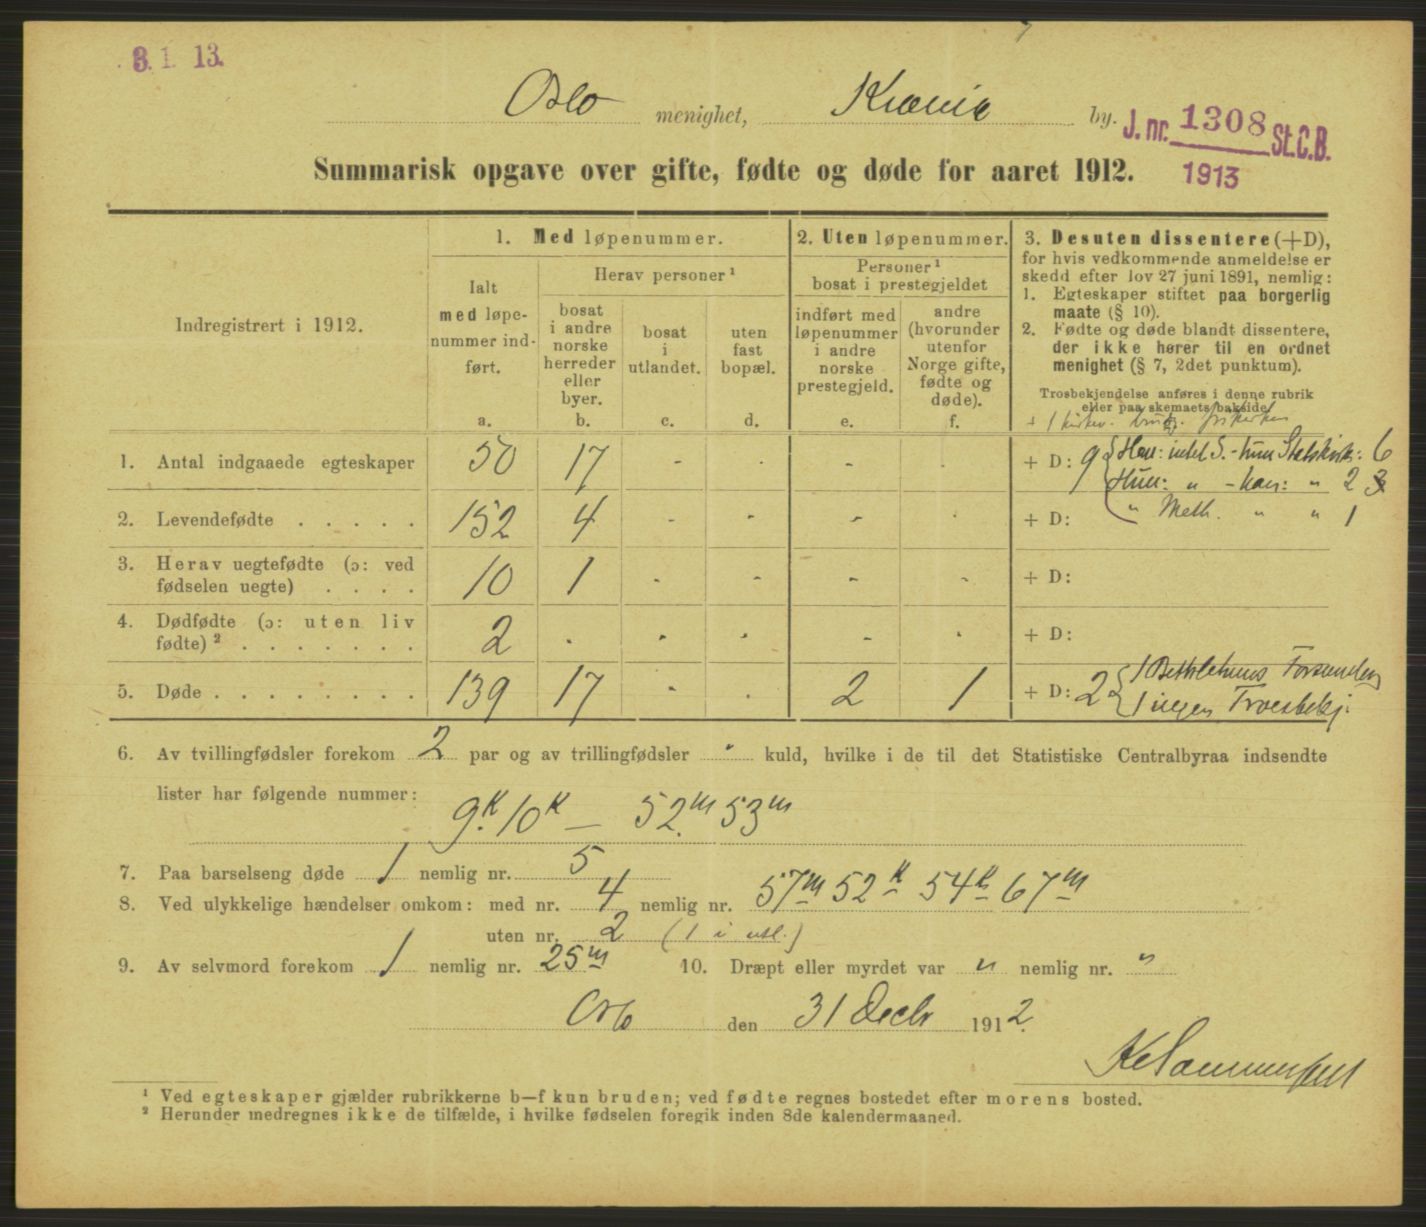 3. 1. 13.
Oslo menighet, Krania by.
J. nr. 1308 St.C.B.
1913
Summarisk opgave over gifte, fødte og døde for aaret 1912.
Indregistrert i 1912.
1. Med løpenummer.
Ialt med løpenummer indført.
a.
Herav personer ¹
bosat i andre norske herreder eller byer.
b.
bosat i utlandet.
c.
uten fast bopæl.
d.
2. Uten løpenummer.
Personer ¹ bosat i prestegjeldet
indført med løpenummer i andre norske prestegjeld.
e.
andre (hvorunder utenfor Norge gifte, fødte og døde).
f.
3. Desuten dissentere (+D),
for hvis vedkommende anmeldelse er
skedd efter lov 27 juni 1891, nemlig:
1. Egteskaper stiftet paa borgerlig
maate (§ 10).
2. Fødte og døde blandt dissentere,
der ikke hører til en ordnet
menighet (§ 7, 2det punktum).
Trosbekjendelse anføres i denne rubrik
eller paa skemaets bakside.
1. Antal indgaaede egteskaper 50 17 - - - - + D: 9 Han: intet S. - hun Statskirk: 6
Hun: " - han: " 2
" Meth. " " 1
2. Levendefødte . . . . . 152 4 - - - - + D:
3. Herav uegtefødte (ɔ: ved
fødselen uegte) . . . . 10 1 - - - - + D:
4. Dødfødte (ɔ: uten liv
fødte) ² . . . . . . . 2 - - - - - + D:
5. Døde . . . . . . . . 139 17 - - 2 1 + D: 2 1 Bethlehems Forsamling
1 ingen Troesbekj.
6. Av tvillingfødsler forekom 2 par og av trillingfødsler " kuld, hvilke i de til det Statistiske Centralbyraa indsendte
lister har følgende nummer:
9.K 10K — 52.m 53m
7. Paa barselseng døde 1 nemlig nr. 5
8. Ved ulykkelige hændelser omkom: med nr. 4 nemlig nr. 57m 52K 54K 67m
uten nr. 2 (1 i utl.)
9. Av selvmord forekom 1 nemlig nr. 25m 10. Dræpt eller myrdet var " nemlig nr. "
Oslo den 31 Decbr 1912.
¹ Ved egteskaper gjælder rubrikkerne b—f kun bruden; ved fødte regnes bostedet efter morens bosted.
² Herunder medregnes ikke de tilfælde, i hvilke fødselen foregik inden 8de kalendermaaned.